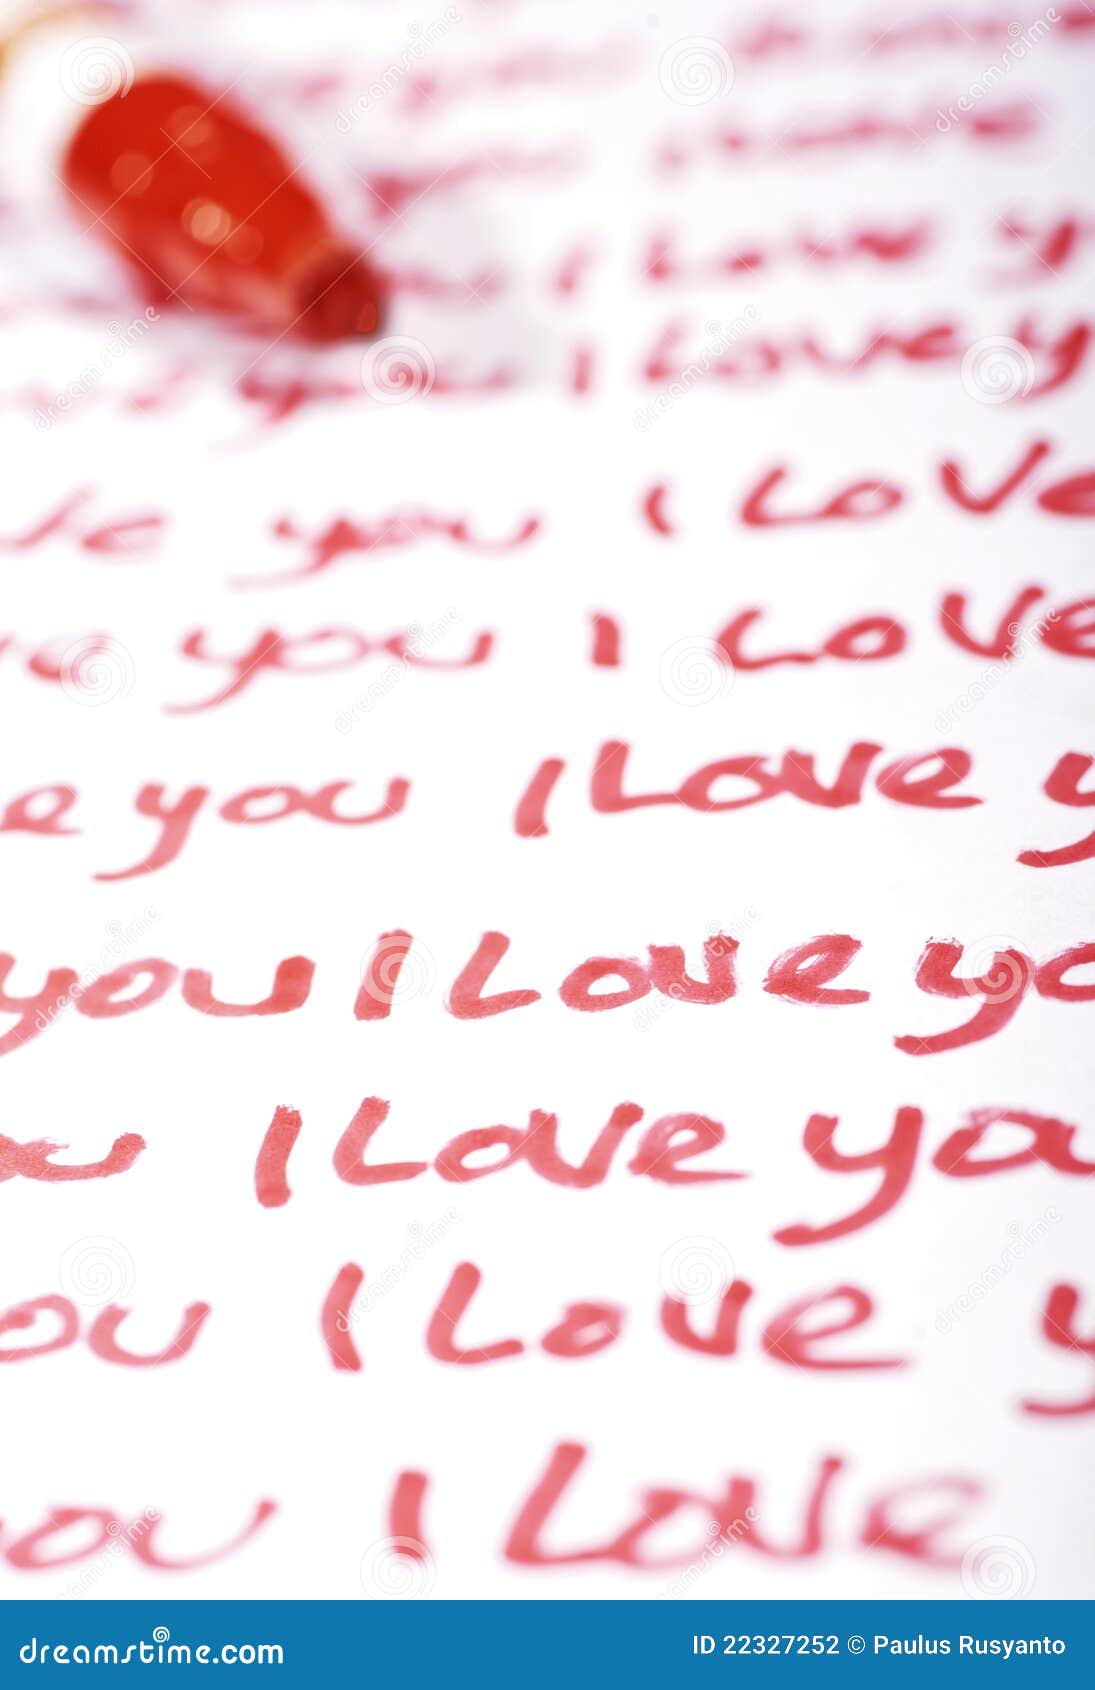 I Love y
you I Love y
ve you I Love
ve you I Love
e you I Love y
you I Love yo
ou I Love you
ou I Love y
you I Love
dreamstime.com ID 22327252 © Paulus Rusyanto